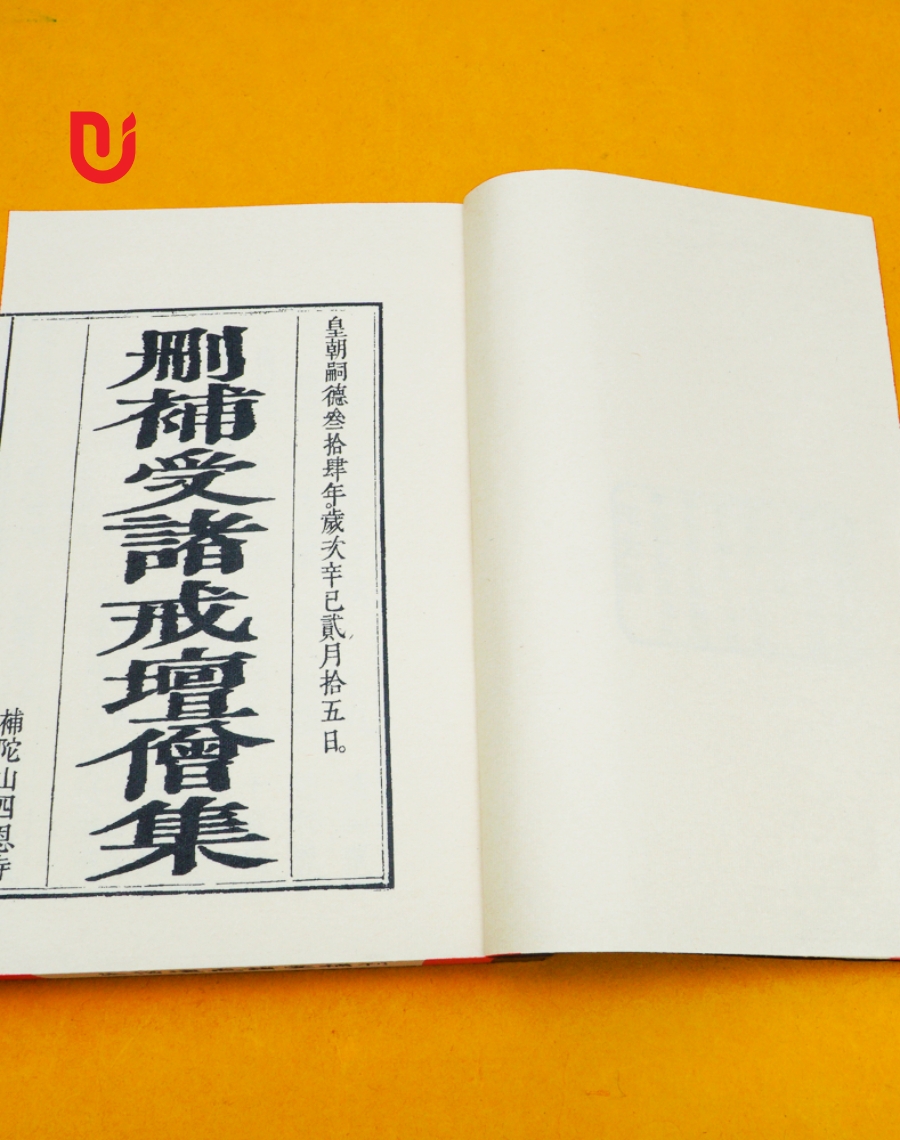 皇朝嗣德叄拾肆年。歲次辛巳貳月拾五日。
刪補受諸戒壇僧集
補陀山四恩寺